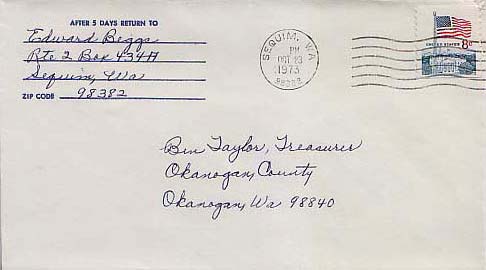 AFTER 5 DAYS RETURN TO
Edward Beggs
Rte 2 Box 434A
Sequim, Wa
ZIP CODE 98382
SEQUIM, WA
PM
OCT 23
1973
98382
UNITED STATES 8c
Ben Taylor, Treasurer
Okanogan, County
Okanogan, Wa 98840